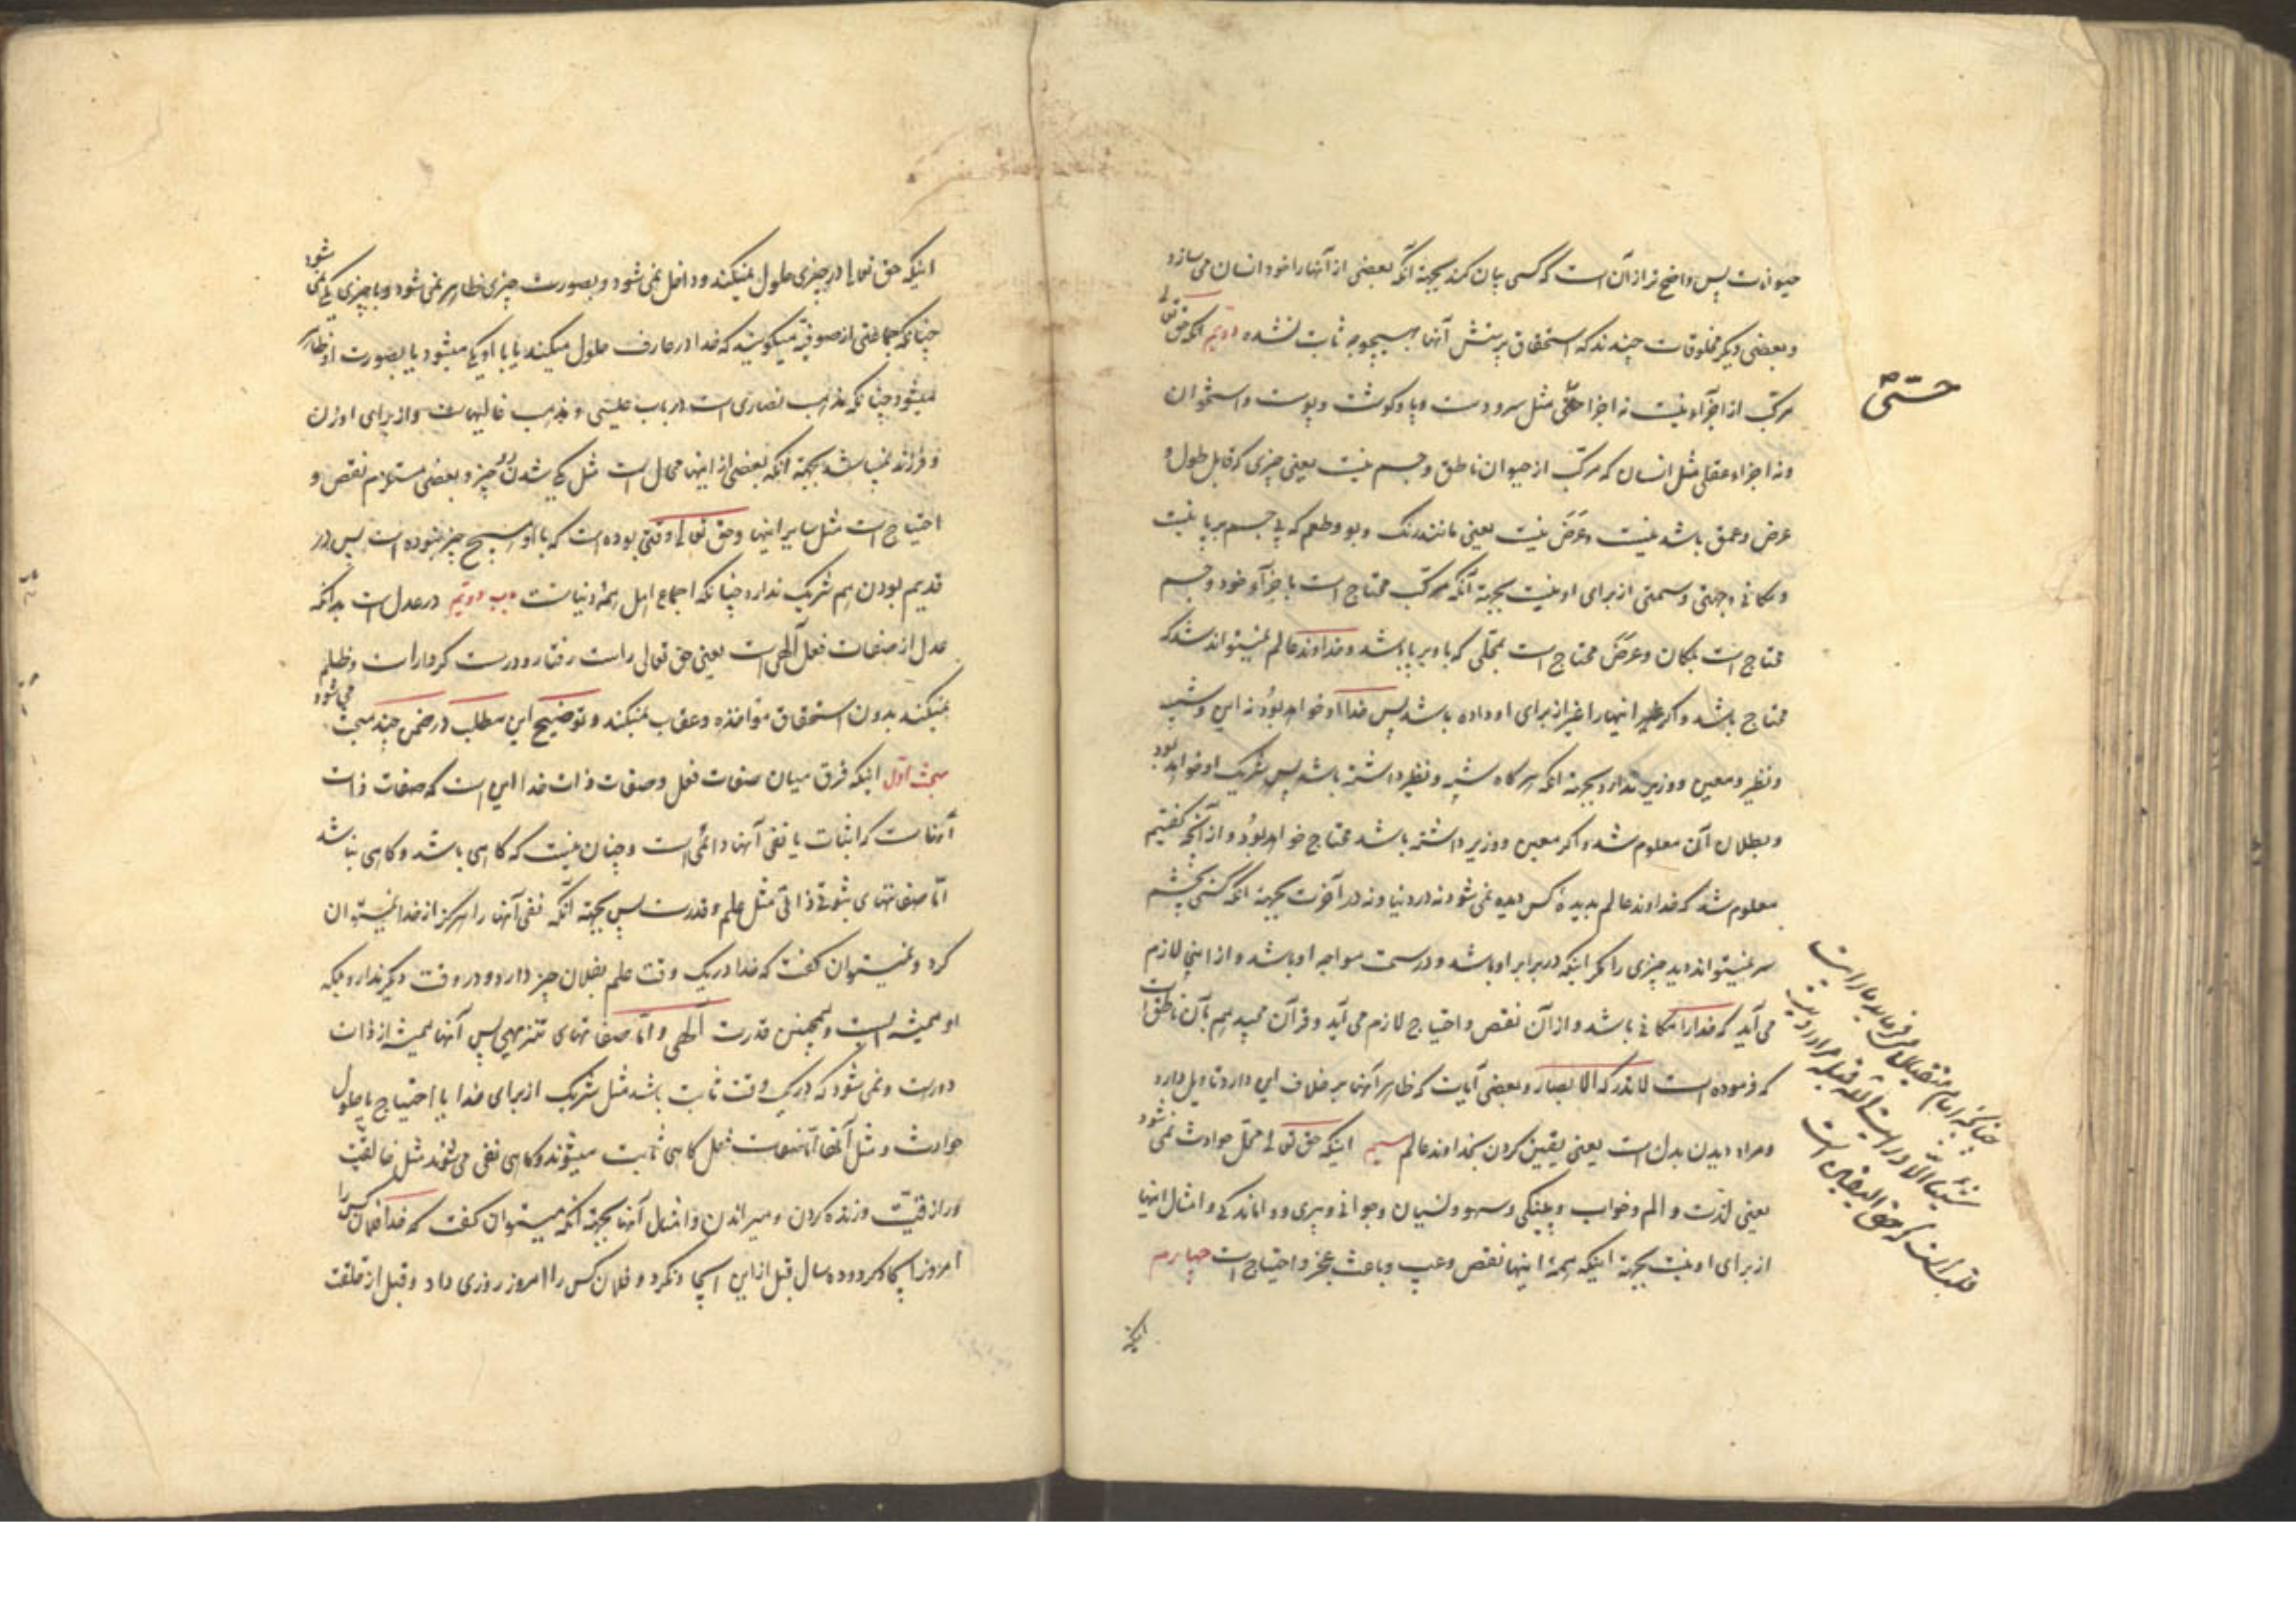 حیوانات پس واضح تر از آن است که کسی بیان کند بجهة آنکه بعضی از آنها را خود انسان می سازد
و بعضی دیگر مخلوقات چندند که استحقاق پرستش آنها بهیچوجه ثابت نشده دویم آنکه حق تعالی
مرکب از اجزاء نیست نه اجزا حسّی مثل سر و دست و پا و گوشت و پوست و استخوان
و نه اجزاء عقلی مثل انسان که مرکب از حیوان ناطق و جسم نیست یعنی چیزی که قابل طول و
عرض و عمق باشد نیست و عَرَض نیست یعنی مانند رنگ و بو و طعم که بی جسم بر پا نیست
و مکانی و جهتی و سمتی از برای او نیست بجهة آنکه مرکب محتاج است باجزآء خود و جسم
محتاج است بمکان و عرَض محتاج است بمحلّی که باو بر پا باشد و خداوند عالم نمیتواند شد که
محتاج باشد و اگر اینها را غیر از برای او داده باشد پس خدا او خواهد بوُد نه این و شبیه
و نظیر و معین و وزیر ندارد بجهة آنکه هرگاه شبیه و نظیر داشته باشد پس شریک او خواهد بود
و بطلان آن معلوم شد و اگر معین و وزیر داشته باشد محتاج خواهد بوُد و از آنچه گفتیم
معلوم شد که خداوند عالم بدیدهٔ کس دیده نمی شود نه در دنیا و نه در آخرت بجهة آنکه کسی بچشم
سر نمیتواند دید چیزی را مگر اینکه در برابر او باشد و در سمت مواجه او باشد و از این لازم
می آید که خدا را مکانی باشد و از آن نقص و احتیاج لازم می آید و قرآن مجید هم بآن ناطق است
که فرموده است لا تدرکه الابصار و بعضی آیات که ظاهر آنها بر خلاف این دارد تاویل دارد
و مراد دیدن بدل است یعنی یقین کردن بخداوند عالم سیم اینکه حق تعالی محل حوادث نمی شود
یعنی لذّت و الم و خواب و پینکی و سهو و نسیان و جوانی و پیری و واماندکی و امثال اینها
از برای او نیست بجهة اینکه همهٔ اینها نقص و عیب و باعث عجز و احتیاج است چهارم
اینکه
حسّی
چنانکه امام متقیان میفرماید ما رایت
شیئا الا و رایت الله قبله مراد رویت
قلب است که حق الیقین است
اینکه حق تعالی در چیزی حلول نمیکند و داخل نمی شود و بصورت چیزی ظاهر نمی شود و با چیزی یکی نمی شود
چنانکه جماعتی از صوفیّه میگویند که خدا در عارف حلول میکند یا با او یکی میشود یا بصورت او ظاهر
میشود چنانکه مذهب نصاری است در باب عیسی و مذهب غالیهاست و از برای او زن
و فرزند نمیباشد بجهة آنکه بعضی از اینها محال است مثل یکی شدن دو چیز و بعضی مستلزم نقص و
احتیاج است مثل سایر اینها و حق تعالی وقتی بوده است که با او هیچ چیز نبوده است پس در
قدیم بودن هم شریک ندارد چنانکه اجماع اهل همهٔ دنیاست باب دویم در عدل است بدانکه
عدل از صفات فعل آلهی است یعنی حق تعالی راست رفتار و درست کردار است و ظلم
نمیکند بدون استحقاق مؤاخذه و عقاب نمیکند و توضیح این مطلب در ضمن چند مبحث می شود
مبحث اوّل اینکه فرق میان صفات فعل و صفات ذات خدا این است که صفات ذات
آنهاست که اثبات یا نفی آنها دائمی است و چنان نیست که کاهی باشد و کاهی نباشد
امّا صفاتهای ثبوتی ذاتی مثل علم و قدرت پس بجهة آنکه نفی آنها را هرکز از خدا نمیتوان
کرد و نمیتوان کفت که خدا در یک وقت علم بفلان چیز دارد و در وقت دیگر ندارد بلکه
او همیشه است و همچنین قدرت آلهی و امّا صفاتهای تنزیهی پس آنها همیشه از ذات
دورست و نمی شود که در یک وقت ثابت باشد مثل شریک از برای خدا یا احتیاج یا حلول
حوادث و مثل آنها امّا صفات فعل کاهی ثابت میشوند و کاهی نفی می شوند مثل خالقیّت
و رازقیّت و زنده کردن و میراندن و امثال آنها بجهة آنکه میتوان کفت که خدا فلان کس را
امروز ایجاد کرد و ده سال قبل از این ایجاد نکرد و فلان کس را امروز روزی داد و قبل از خلقت